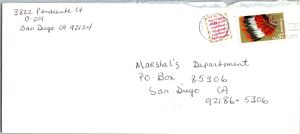 3822 Pendiente Ct
O-201
San Diego CA 92124
Marshal's Department
PO Box 85306
San Diego CA
92186-5306